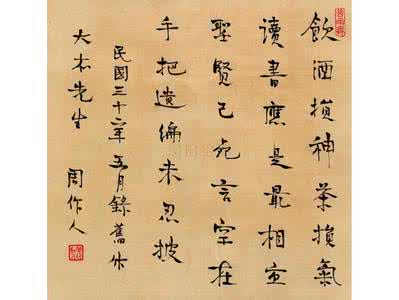 飲酒損神茶損氣
讀書應是最相宜
聖賢已死言空在
手把遺編未忍披
民國三十六年五月錄舊作
大杰先生 周作人